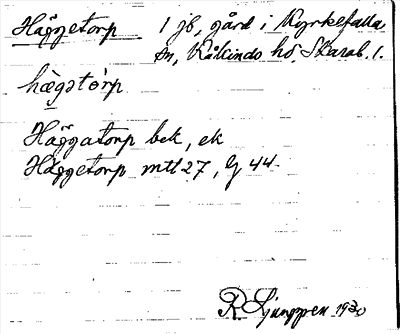 Häggetorp 1 jb, gård i Kyrkefalla
sn, Kåkindo hd Skarab. l.
hὰgətòrp
Häggatorp bek, ek
Häggetorp mtl 27, G 44
R. Ljunggren 1930